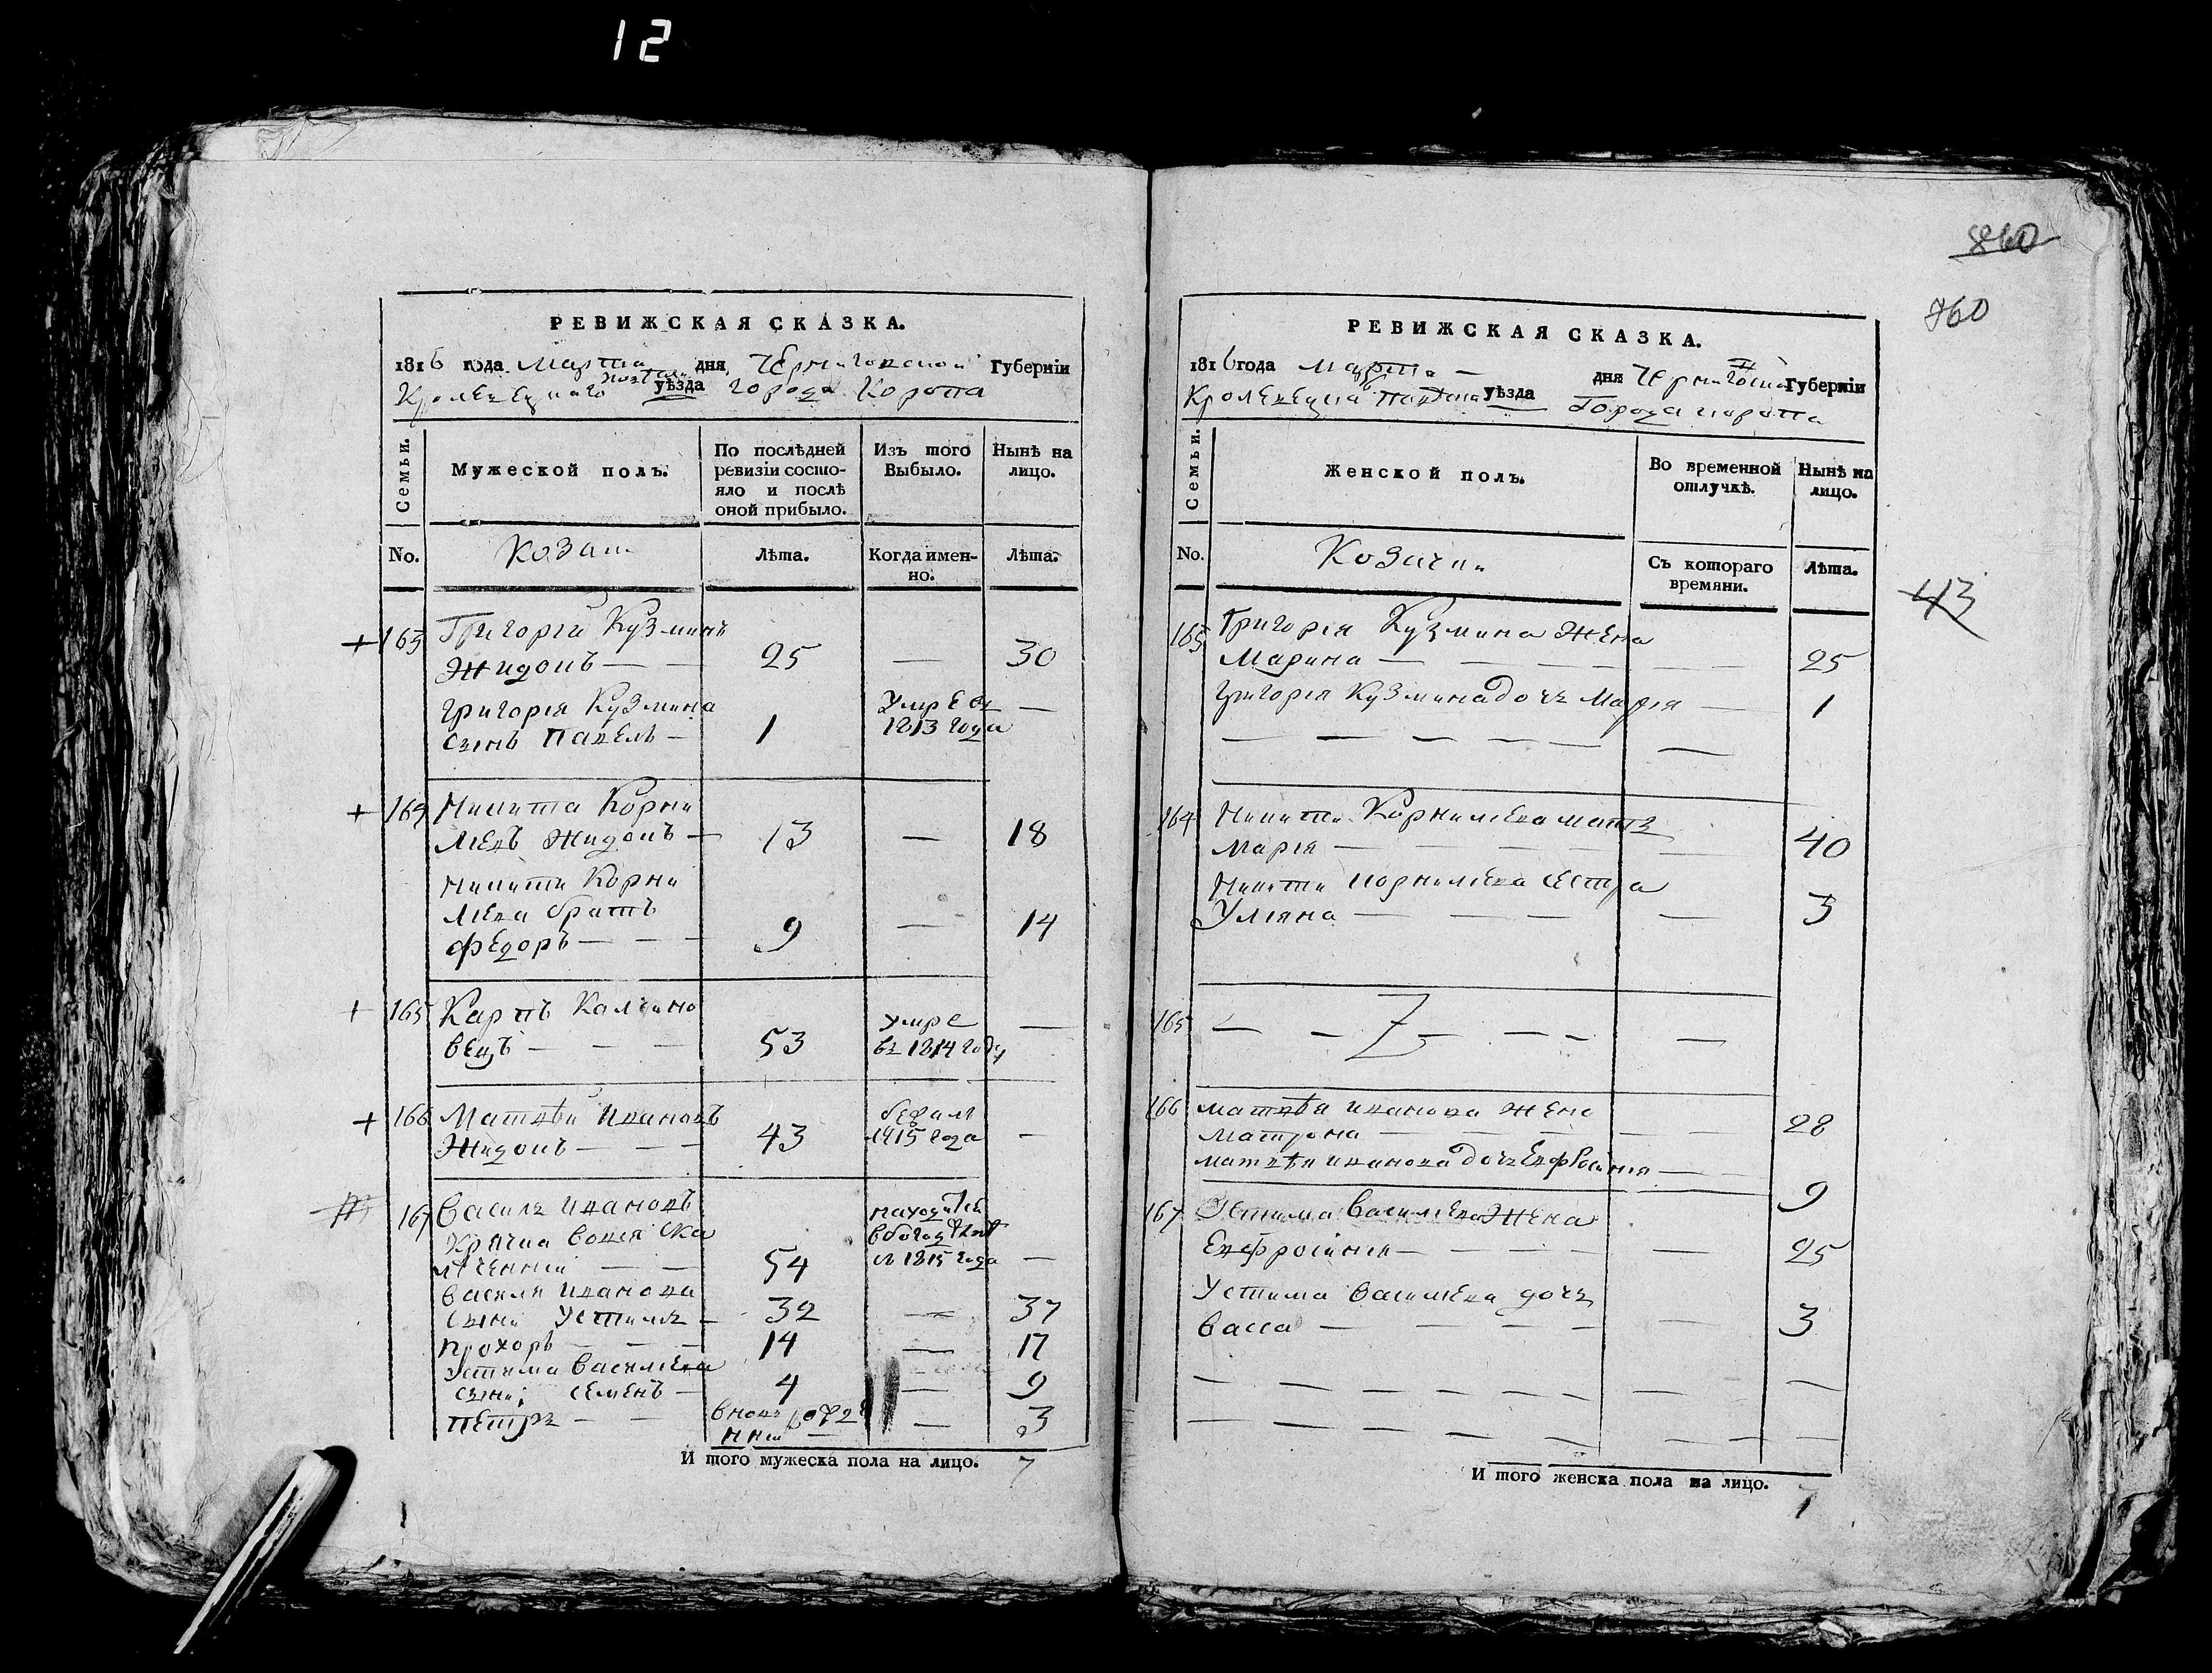 12
860
760
43
РЕВИЖСКАЯ СКАЗКА.
1816 года Марта дня, Черниговской Губерніи
Кролевецкаго повѣта уѣзда города Коропа
Семьи.
Мужеской полъ.
По послѣдней ревизіи состо-
яло и послѣ
оной прибыло.
Изъ того
Выбыло.
Нынѣ на
лицо.
No.
Козаки
Лѣта.
Когда имен-
но.
Лѣта.
+ 163 Григорій Кузминъ
Жидокъ — — 25 — 30
Григорія Кузмина
сынъ Павелъ — 1 Умре въ 1813 года —
+ 164 Никита Корни
лиевъ Жидокъ — 13 — 18
Никити Корни
лиева братъ
Федоръ — — — 9 — 14
+ 165 Карпъ Калчино
вецъ — — — 53 умре въ 1814 году —
+ 166 Матвѣй Ивановъ
Жидокъ — — — 43 1815 года —
167 Василь Ивановъ
54 находитсѧ с 1815 года —
Василя Иванова
сыни Устимъ — 32 — 37
Прохоръ — — — 14 — 17
Устима Василиева
сыни, Семенъ — 4 — 9
Петръ — — вновь рожде
нній — 3
И того мужеска пола на лицо. 7
РЕВИЖСКАЯ СКАЗКА.
1816 года Марта — дня Черниговской Губерніи
Кролевецка Повѣта уѣзда Города Коропа
Семьи.
Женской полъ.
Во временной
отлучкѣ.
Нынѣ на
лицо.
No.
Козачки
Съ котораго
времяни.
Лѣта.
163 Григорія Кузмина Жена
Марина — — — — — — 25
Григорія Кузмина дочь Марія — 1
— — — — — — —
164 Никити Корнилиева мать
Марія — — — — — 40
Никити Корнилиева сестра
Уляна — — — — 3
165 — — Z — — — —
166 Матвѣя Иванова жена
Матрона — — — — — — 28
Матвѣя Иванова дочь Евфросинія — — 9
167 Устима Василиева Жена
Евфросинія — — — — — 25
Устима Василиева дочь
Васса — — — — — 3
— — — — — — —
— — — — — — — —
И того женска пола на лицо. 7